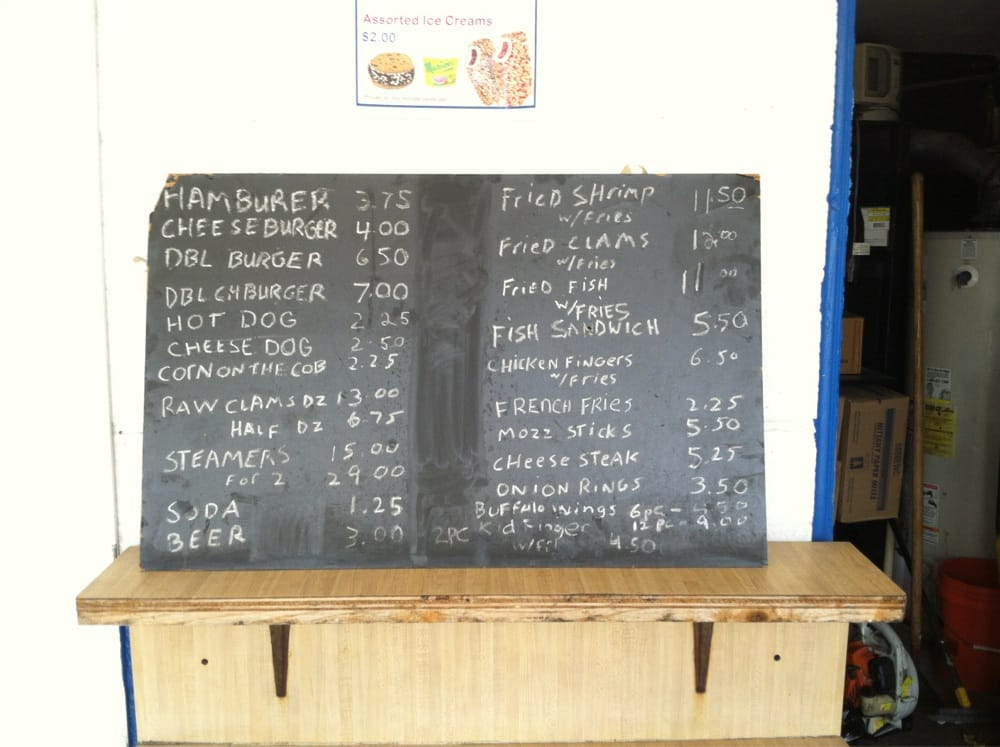 Assorted Ice Creams
$2.00
HAMBURER 3.75
CHEESEBURGER 4.00
DBL BURGER 6 50
DBL CHBURGER 7.00
HOT DOG 2 25
CHEESE DOG 2.50
CORN ON THE COB 2.25
RAW CLAMS DZ 13.00
HALF DZ 6.75
STEAMERS 15.00
FOR 2 29 00
SODA 1.25
BEER 3.00
FRIED SHRIMP 11.50
w/Fries
FRIED CLAMS 12.00
w/Fries
FRIED FISH 11 00
W/FRIES
FISH SANDWICH 5.50
CHICKEN FINGERS 6.50
w/Fries
FRENCH FRIES 2.25
MOZZ STICKS 5.50
CHEESE STEAK 5.25
ONION RINGS 3.50
BUFFALO WINGS 6pc -
2PC Kid Finger 12 pc - 9.00
4.50